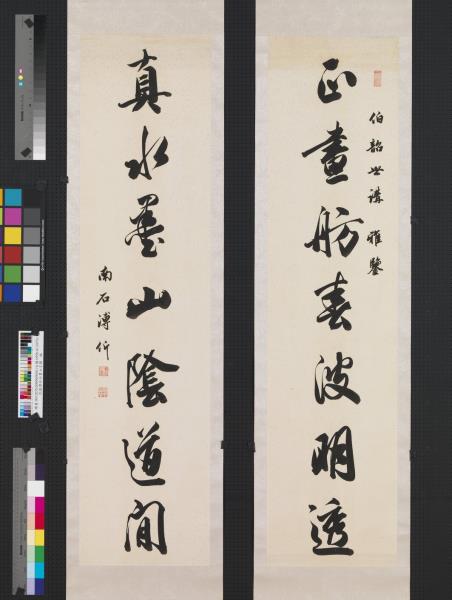 正畫舫春波明透
伯韶世講雅鑒
真水墨山陰道間
南石溥伒